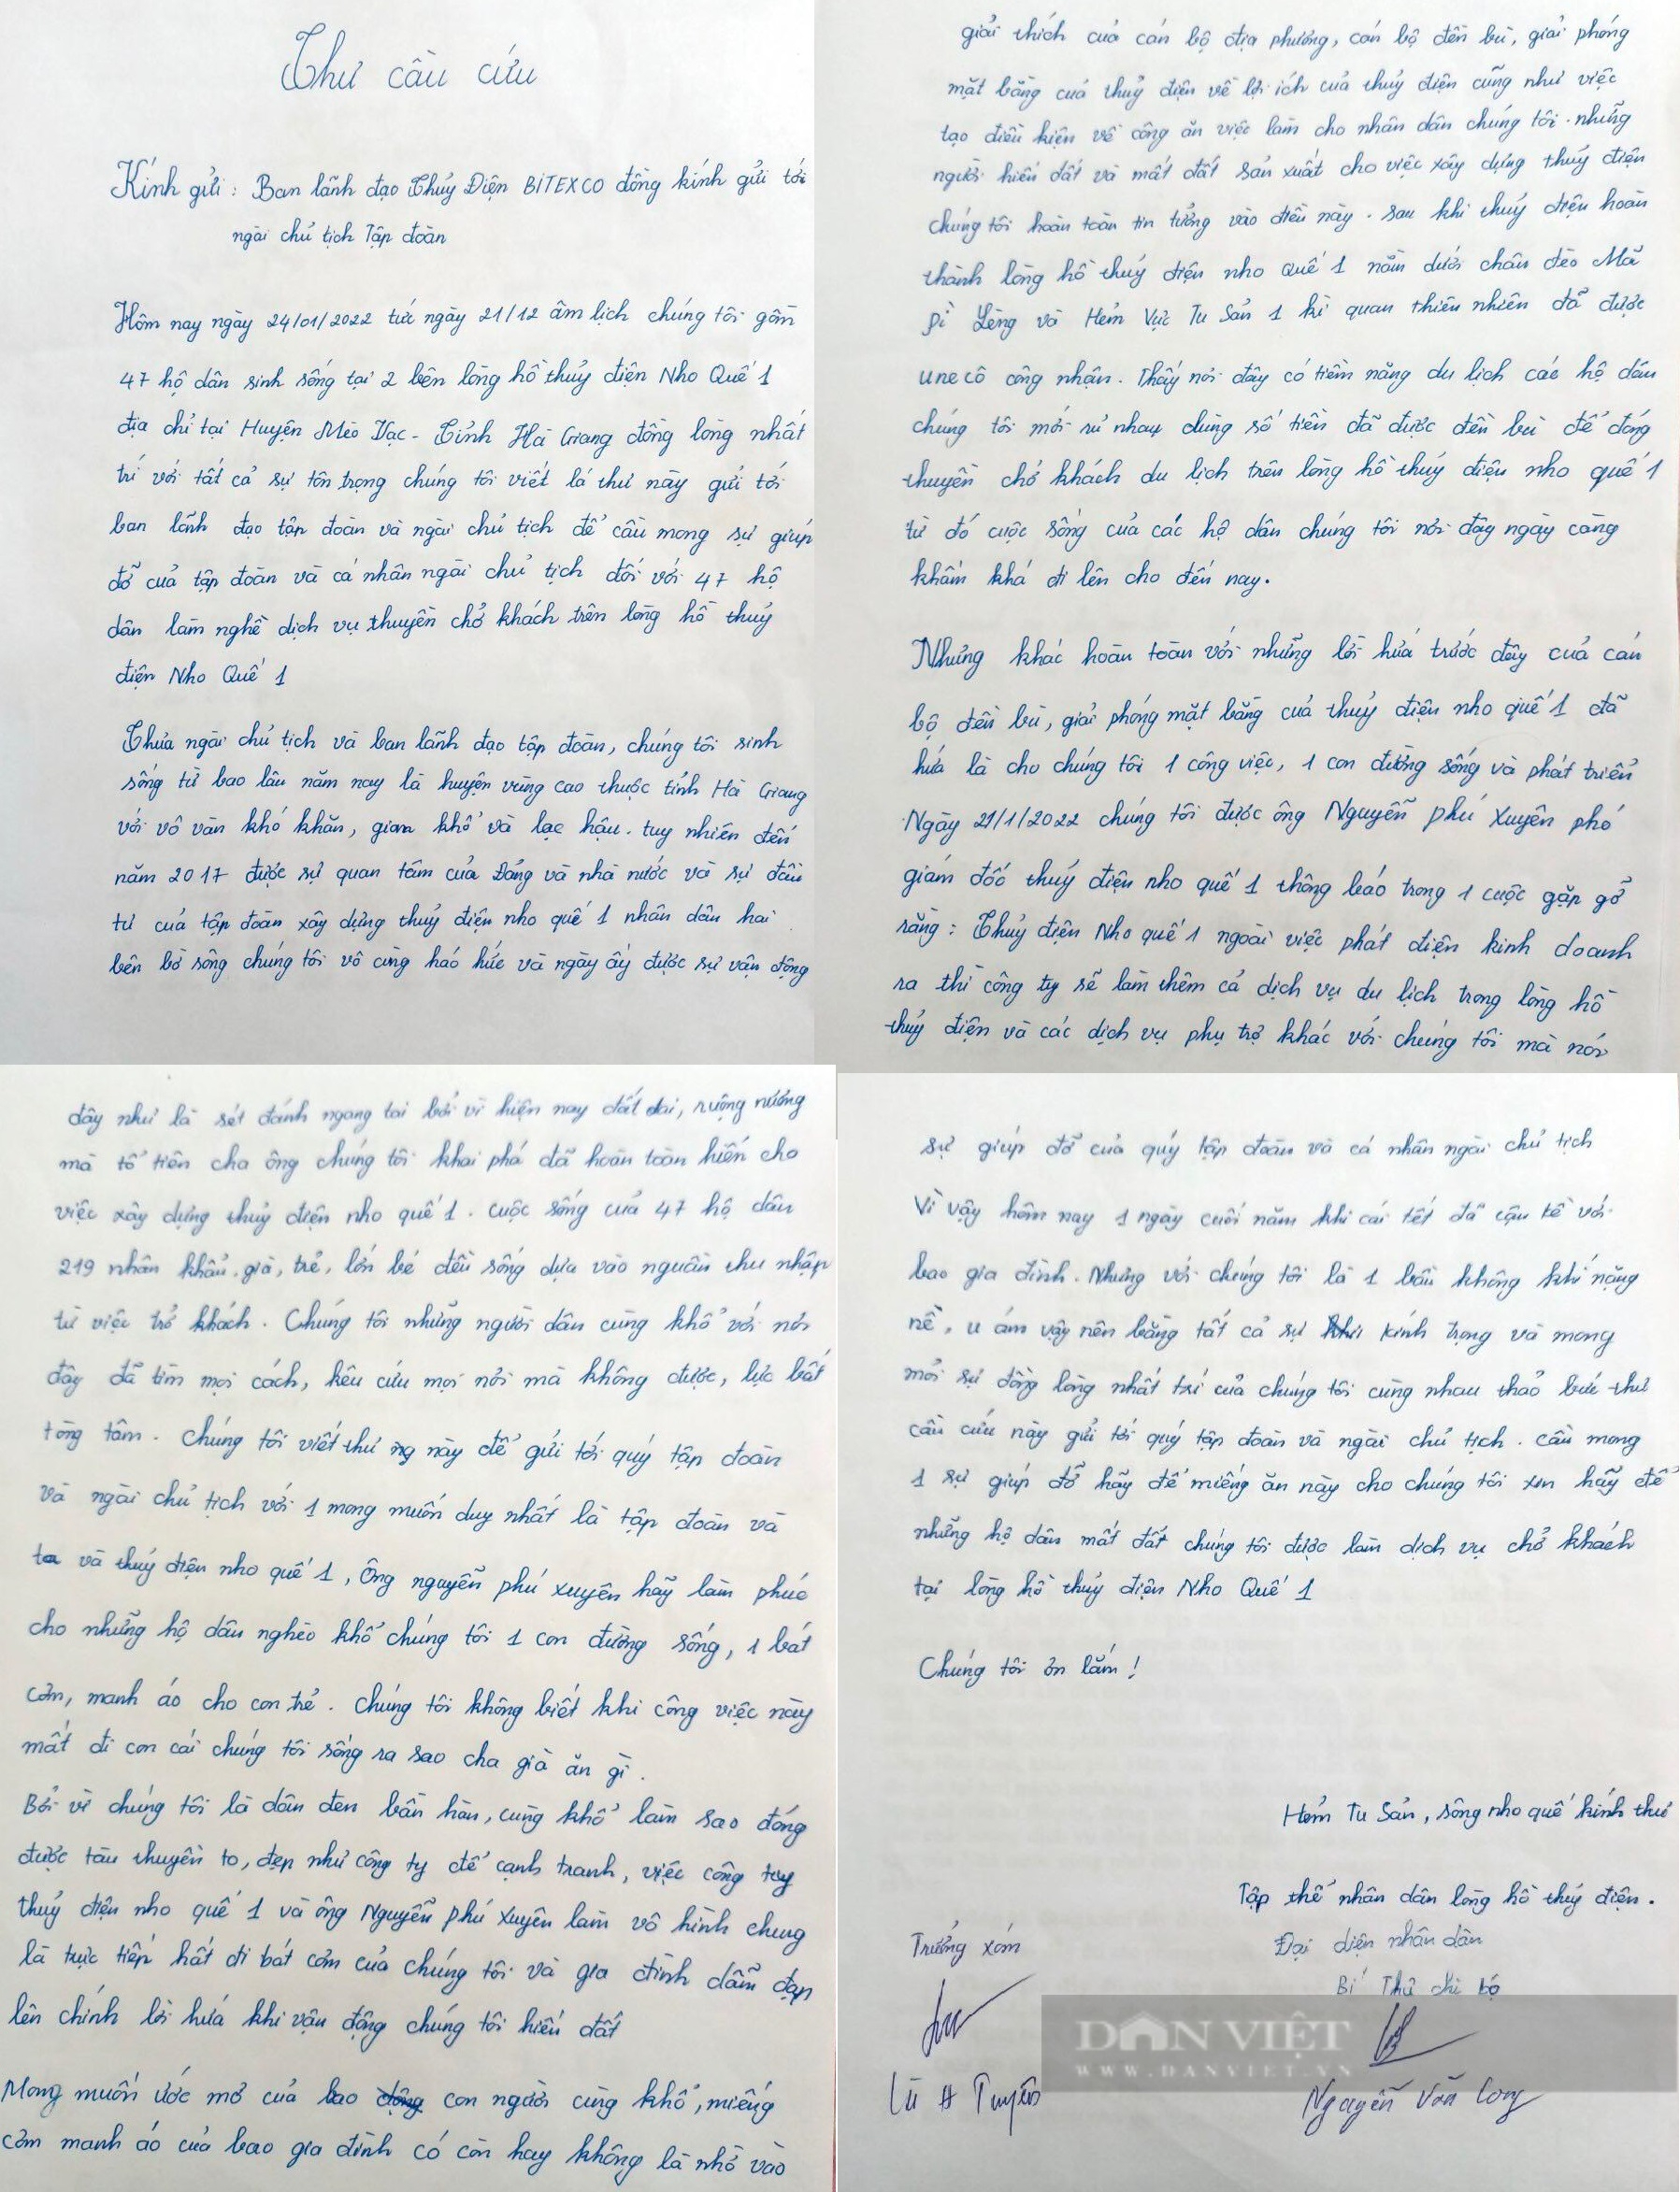 Thư cầu cứu
Kính gửi : Ban lãnh đạo Thủy Điện BITEXCO đồng kính gửi tới
ngài chủ tịch Tập đoàn
Hôm nay ngày 24/01/2022 tức ngày 21/12 âm lịch chúng tôi gồm
47 hộ dân sinh sống tại 2 bên lòng hồ thủy điện Nho Quế 1
địa chỉ tại Huyện Mèo Vạc - Tỉnh Hà Giang đồng lòng nhất
trí với tất cả sự tôn trọng chúng tôi viết lá thư này gửi tới
ban lãnh đạo tập đoàn và ngài chủ tịch để cầu mong sự giúp
đỡ của tập đoàn và cá nhân ngài chủ tịch đối với 47 hộ
dân làm nghề dịch vụ thuyền chở khách trên lòng hồ thủy
điện Nho Quế 1
Thưa ngài chủ tịch và ban lãnh đạo tập đoàn, chúng tôi sinh
sống từ bao lâu năm nay là huyện vùng cao thuộc tỉnh Hà Giang
với vô vàn khó khăn, gian khổ và lạc hậu. tuy nhiên đến
năm 2017 được sự quan tâm của Đảng và nhà nước và sự đầu
tư của tập đoàn xây dựng thuỷ điện nho quế 1 nhân dân hai
bên bờ sông chúng tôi vô cùng háo hức và ngày ấy được sự vận động
giải thích của cán bộ địa phương, cán bộ đền bù, giải phóng
mặt bằng của thuỷ điện về lợi ích của thuỷ điện cũng như việc
tạo điều kiện về công ăn việc làm cho nhân dân chúng tôi. những
người hiến đất và mất đất sản xuất cho việc xây dựng thuỷ điện
chúng tôi hoàn toàn tin tưởng vào điều này. sau khi thuỷ điện hoàn
thành lòng hồ thuỷ điện nho quế 1 nằm dưới chân đèo Mã
Pì Lèng và Hẻm Vực Tu Sản 1 kì quan thiên nhiên đã được
unecô công nhận. Thấy nơi đây có tiềm năng du lịch các hộ dân
chúng tôi mới rủ nhau dùng số tiền đã được đền bù để đóng
thuyền chở khách du lịch trên lòng hồ thuỷ điện nho quế 1
từ đó cuộc sống của các hộ dân chúng tôi nơi đây ngày càng
khấm khá đi lên cho đến nay.
Nhưng khác hoàn toàn với những lời hứa trước đây của cán
bộ đền bù, giải phóng mặt bằng của thuỷ điện nho quế 1 đã
hứa là cho chúng tôi 1 công việc, 1 con đường sống và phát triển
Ngày 21/1/2022 chúng tôi được ông Nguyễn phú Xuyên phó
giám đốc thuỷ điện nho quế 1 thông báo trong 1 cuộc gặp gỡ
rằng : Thuỷ điện Nho quế 1 ngoài việc phát điện kinh doanh
ra thì công ty sẽ làm thêm cả dịch vụ du lịch trong lòng hồ
thuỷ điện và các dịch vụ phụ trợ khác với chúng tôi mà nói
đây như là sét đánh ngang tai bởi vì hiện nay đất đai, ruộng nương
mà tổ tiên cha ông chúng tôi khai phá đã hoàn toàn hiến cho
việc xây dựng thuỷ điện nho quế 1. cuộc sống của 47 hộ dân
219 nhân khẩu, già, trẻ, lớn bé đều sống dựa vào nguồn thu nhập
từ việc trở khách. Chúng tôi những người dân cùng khổ với nơi
đây đã tìm mọi cách, kêu cứu mọi nơi mà không được, lực bất
tòng tâm. Chúng tôi viết thư này để gửi tới quý tập đoàn
và ngài chủ tịch với 1 mong muốn duy nhất là tập đoàn và
và thuỷ điện nho quế 1, Ông nguyễn phú xuyên hãy làm phúc
cho những hộ dân nghèo khổ chúng tôi 1 con đường sống, 1 bát
cơm, manh áo cho con trẻ. Chúng tôi không biết khi công việc này
mất đi con cái chúng tôi sống ra sao cha già ăn gì.
Bởi vì chúng tôi là dân đen bần hàn, cùng khổ làm sao đóng
được tàu thuyền to, đẹp như công ty để cạnh tranh, việc công ty
thuỷ điện nho quế 1 và ông Nguyễn phú xuyên làm vô hình chung
là trực tiếp hất đi bát cơm của chúng tôi và gia đình dẫm đạp
lên chính lời hứa khi vận động chúng tôi hiến đất
Mong muốn ước mơ của bao con người cùng khổ, miếng
cơm manh áo của bao gia đình có còn hay không là nhờ vào
sự giúp đỡ của quý tập đoàn và cá nhân ngài chủ tịch
Vì vậy hôm nay 1 ngày cuối năm khi cái tết đã cận kề với
bao gia đình. Nhưng với chúng tôi là 1 bầu không khí nặng
nề, u ám vậy nên bằng tất cả sự kính trọng và mong
mỏi sự đồng lòng nhất trí của chúng tôi cùng nhau thảo bức thư
cầu cứu này gửi tới quý tập đoàn và ngài chủ tịch. cầu mong
1 sự giúp đỡ hãy để miếng ăn này cho chúng tôi xin hãy để
những hộ dân mất đất chúng tôi được làm dịch vụ chở khách
tại lòng hồ thuỷ điện Nho Quế 1
Chúng tôi ơn lắm !
Hẻm Tu Sản, sông nho quế kính thư
Tập thể nhân dân lòng hồ thuỷ điện.
Trưởng xóm
Đại diện nhân dân
Bí Thư chi bộ
DÂN VIỆT
WWW.DANVIET.VN
Nguyễn Văn